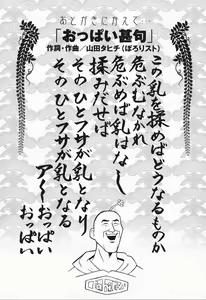 あとがきにかえて……
「おっぱい甚句」
作詞・作曲／山田タヒチ（ぽろリスト）
この乳を揉めばどうなるものか
危ぶむなかれ
危ぶめば乳はなし
揉みだせば
そのひとフサが乳となり
そのひとフサが乳となる
ア〜おっぱい
おっぱい